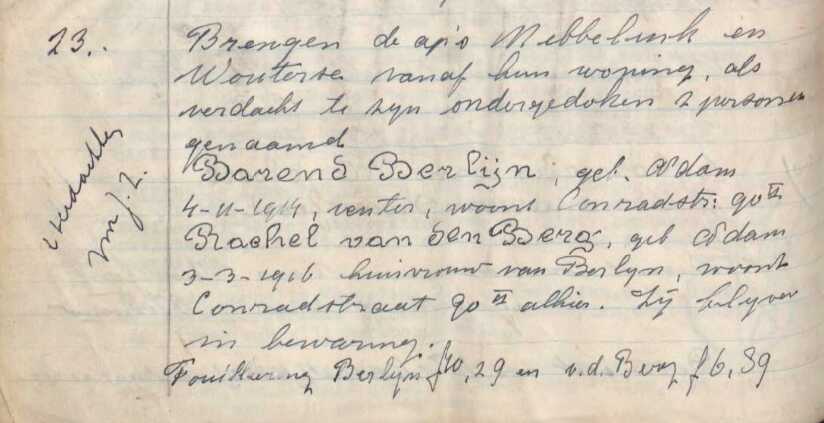 23.. Brengen de ap's Mebbelink en
Wouterse vanaf hun woning, als
verdacht te zijn ondergedoken 2 personen
genaamd
Barend Berlijn, geb. A'dam
4-11-1914, venter, woont Conradstr: 90 II
Rachel van den Berg, geb A'dam
3-3-1916 huisvrouw van Berlyn, woont
Conradstraat 90 II alhier. Zij blyven
in bewaring.
Fouillering Berlyn f 10,29 en v.d. Berg f 6,39
verdachten